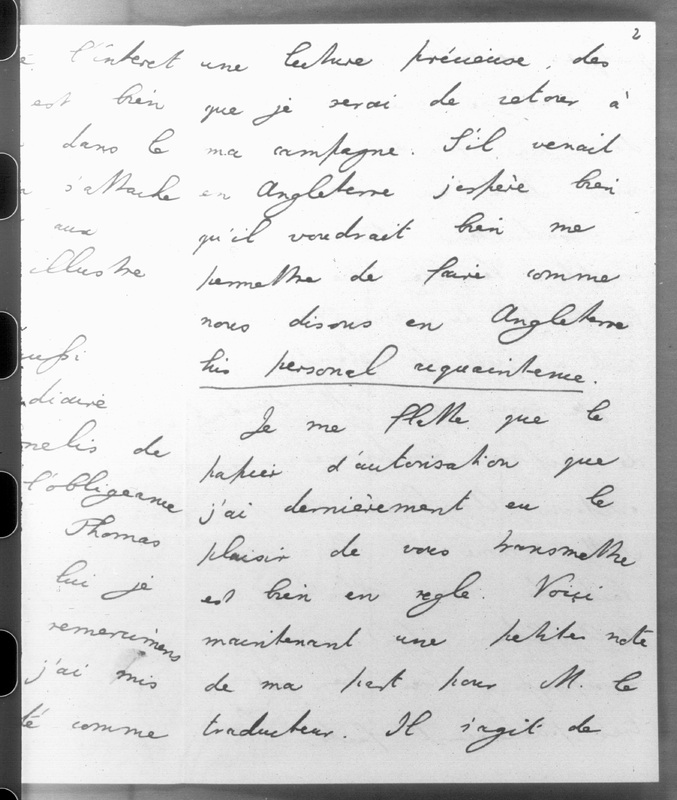 2
l'interet
est bien
dans le
s'attache
aux
illustre
aussi
de
l'obligeance
Thomas
lui je
remercimens
j'ai mis
té comme
une lecture précieuse, des
que je serai de retour à
ma campagne. S'il venait
en Angleterre j'espère bien
qu'il voudrait bien me
permettre de faire comme
nous disons en Angleterre
his personal acquaintance.
Je me flatte que le
papier d'autorisation que
j'ai dernièrement eu le
plaisir de vous transmettre
est bien en regle. Voici
maintenant une petite note
de ma part pour M. le
traducteur. Il s'agit de